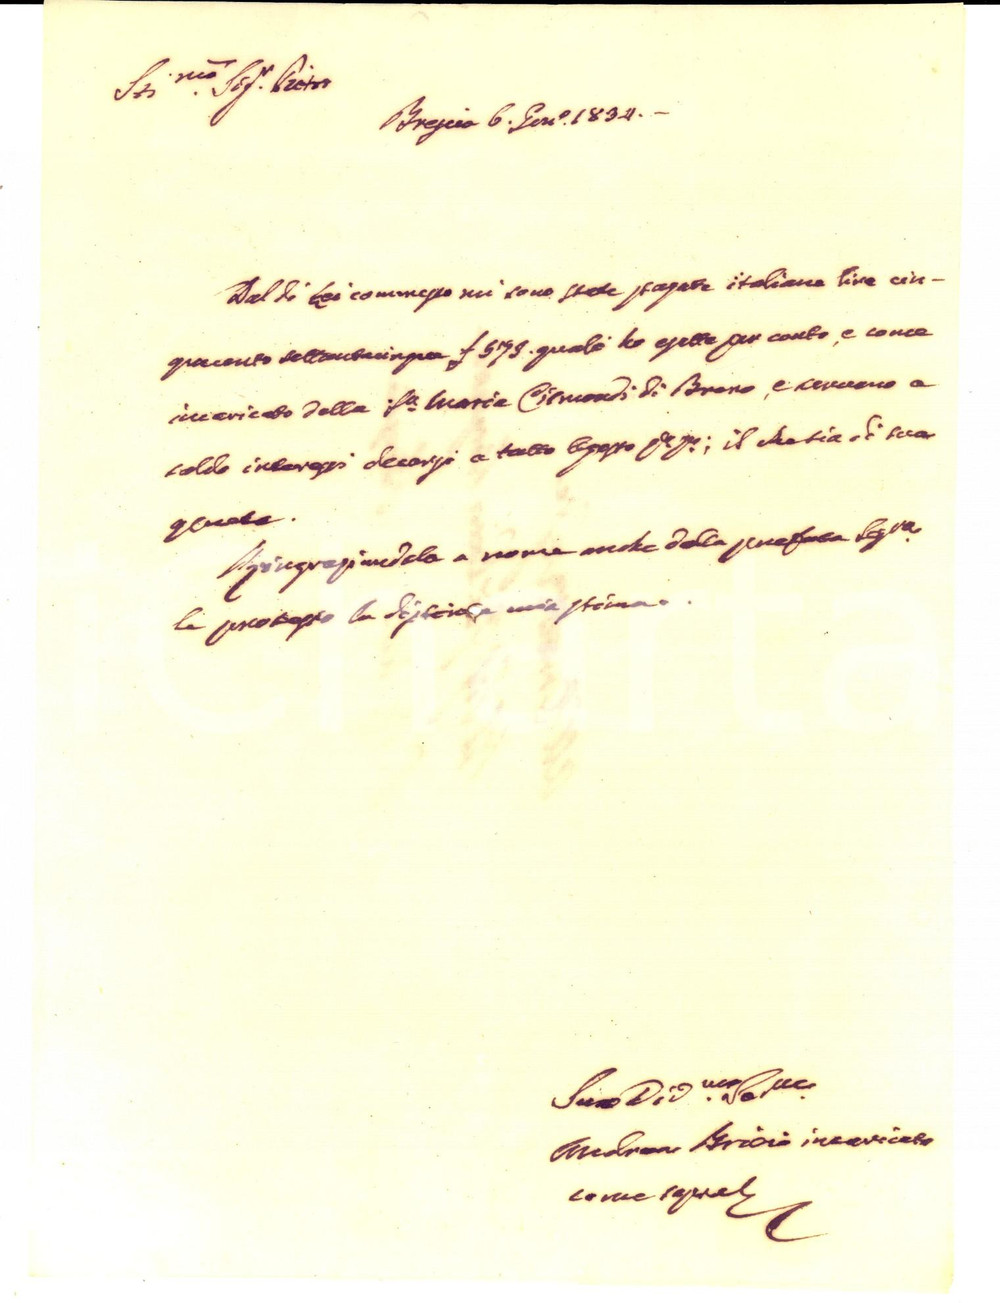 Sti.mo Sig.r Pietro
Brescia 6. Gen.o 1834. –
Dal di Lei commesso mi sono state pagate italiane lire cin-
quecento settantacinque £ 575. quali ho esatte per conto, e come
incaricato della S.ra Maria Cismondi di Breno, e servono a
saldo interessi decorsi a tutto; il che sia di sua
quiete.
Ringraziandola a nome anche della prefata Sig.ra
le protesto la distinta mia stima.
Suo Div.mo Se.re
Andrea Brizio incaricato
come sopra
iCharta